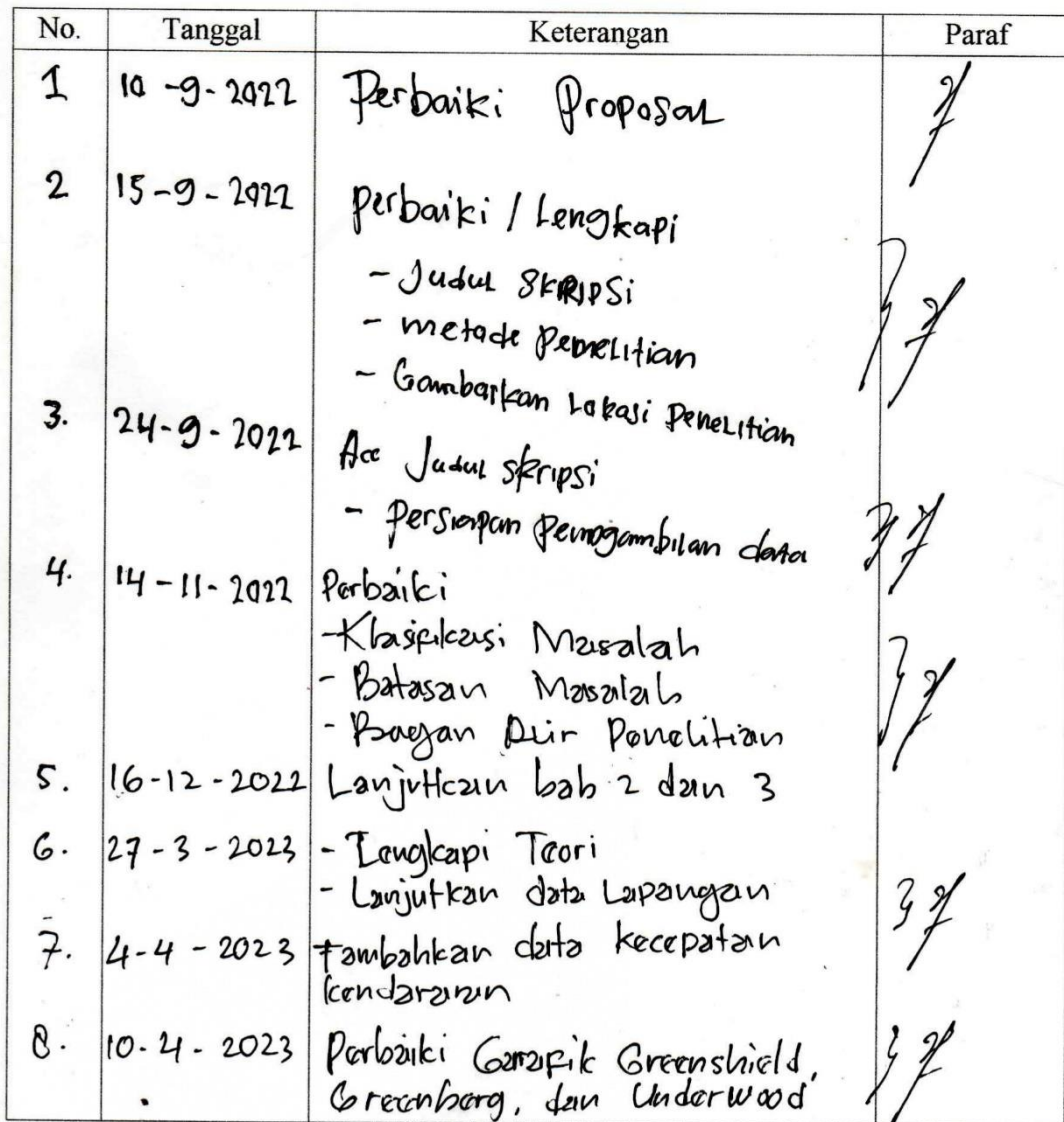 No. Tanggal Keterangan Paraf
1 10-9-2022 Perbaiki Proposal
2 15-9-2022 perbaiki / Lengkapi
- Judul SKRIPSi
- metode Penelitian
- Gambarkan Lokasi Penelitian
3. 24-9-2022 Acc Judul skripsi
- Persiapan Pengambilan data
4. 14-11-2022 Perbaiki
- Klasifikasi Masalah
- Batasan Masalah
- Bagan Alir Penelitian
5. 16-12-2022 Lanjutkan bab 2 dan 3
6. 27-3-2023 - Lengkapi Teori
- Lanjutkan data Lapangan
7. 4-4-2023 Tambahkan data kecepatan
kendaraan
8. 10-4-2023 Perbaiki Grafik Greenshield,
Greenberg, dan Underwood